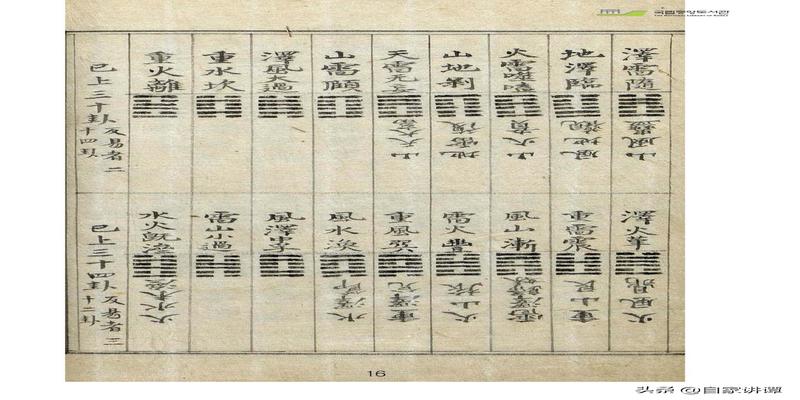 국립중앙도서관
THE NATIONAL LIBRARY OF KOREA
澤雷隨
山風蠱
地澤臨
風地觀
火雷噬嗑
山火賁
山地剝
地雷復
天雷无妄
山天大畜
山雷頤
澤風大過
重水坎
重火離
已上三十卦
及易者二
十四卦
澤火革
火風鼎
重雷震
重山艮
風山漸
雷澤歸妹
雷火豐
火山旅
重風巽
重澤兌
風水渙
水澤節
風澤中孚
雷山小過
水火既濟
火水未濟
已上三十四卦
及易者三
十二卦
16
头条 @自家讲谭